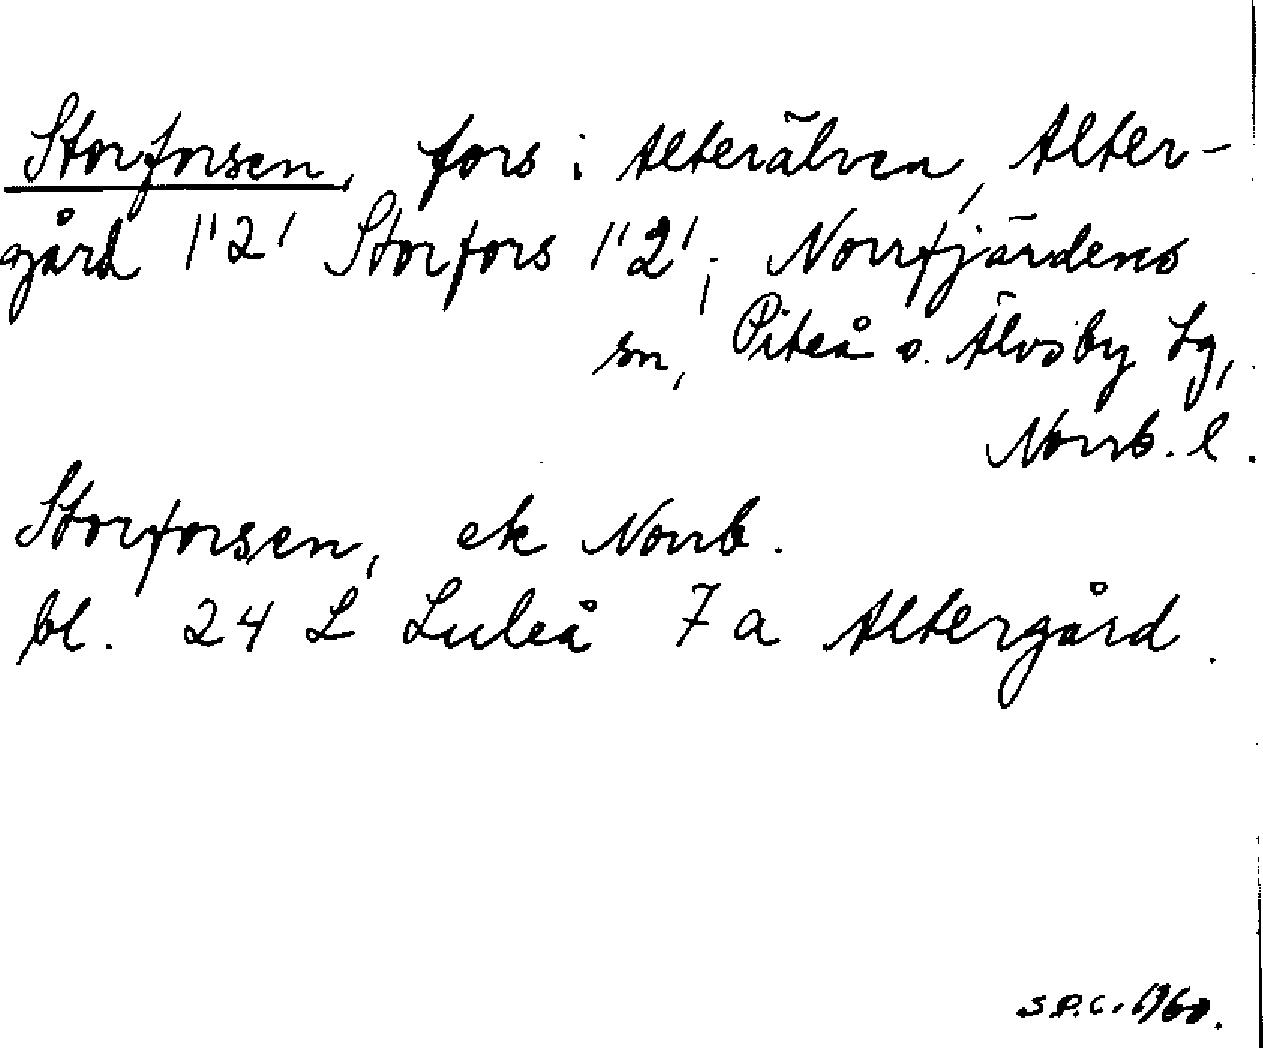 Storforsen, fors i Alterälven, Alter-
gård 1'2' Storfors 1'2', Norrfjärdens
sn, Piteå o. Älvsby tg,
Norrb. l.
Storforsen, ek Norrb.
bl. 24 L Luleå 7 a Altergård.
S.P.C. 1960.